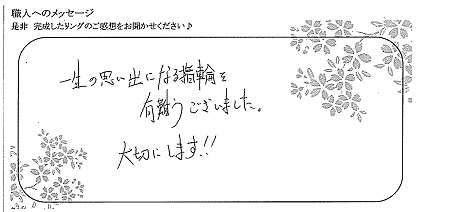 職人へのメッセージ
是非 完成したリングのご感想をお聞かせください♪
一生の思い出になる指輪を
有難うございました。
大切にします!!